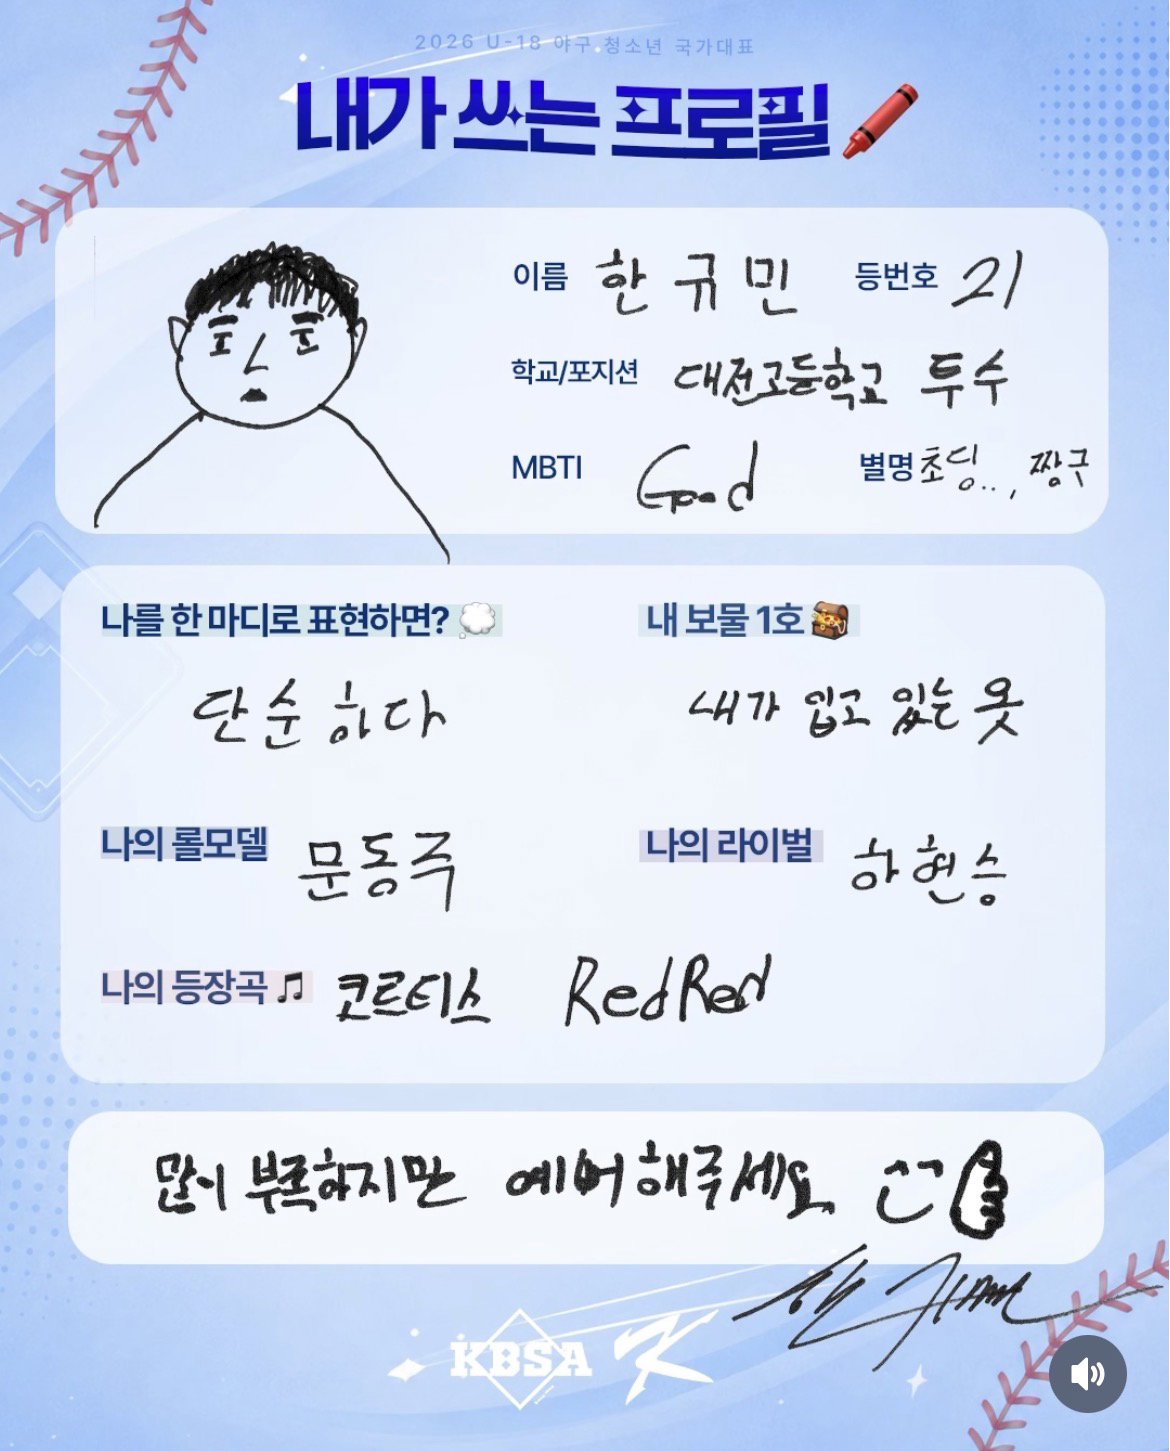 2026 U-18 야구 청소년 국가대표
내가 쓰는 프로필
이름 한규민 등번호 21
학교/포지션 대전고등학교 투수
MBTI Good 별명 초딩.., 짱구
나를 한 마디로 표현하면? 내 보물 1호
단순하다 내가 입고 있는 옷
나의 롤모델 문동주 나의 라이벌 하현승
나의 등장곡 코르티스 RedRed
많이 부족하지만 예뻐해주세요
KBSA K